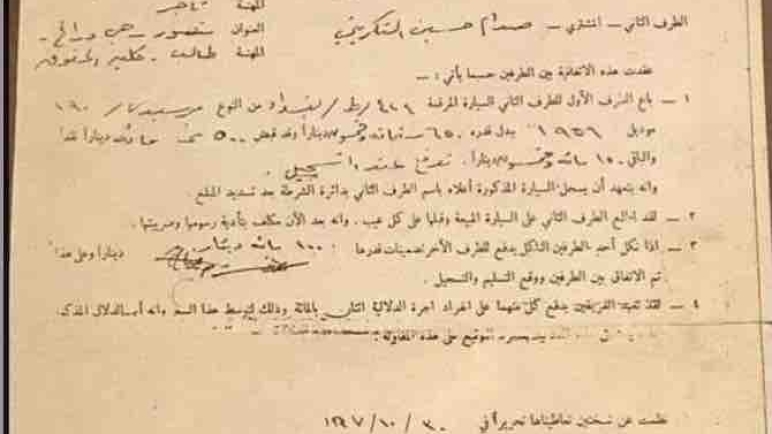 المهنة تاجر
الطرف الثاني - المشتري - صدام حسين التكريتي
العنوان منصور - حي
المهنة طالب - كلية الحقوق
عقدت هذه الاتفاقية بين الطرفين حسبما يأتي : -
١ - باع الطرف الأول للطرف الثاني السيارة المرقمة بغداد من النوع مرسيدس ١٩٠
موديل ١٩٥٦ ببدل قدره ٦٥٠ ديناراً وقد قبض ٥٠٠ ديناراً نقدا
والباقي ١٥٠ ديناراً تدفع عند التسجيل .
وانه يتعهد أن يسجل السيارة المذكورة أعلاه باسم الطرف الثاني بدائرة الشرطة بعد تسديد المبلغ .
٢ - لقد اطلع الطرف الثاني على السيارة المبيعة وقبلها على كل عيب . وانه بعد الآن مكلف بتأدية رسومها وضريبتها .
٣ - اذا نكل أحد الطرفين الناكل يدفع للطرف الآخر تضمينات قدرها ١٠٠ دينار ديناراً وعلى هذا
تم الاتفاق بين الطرفين ووقع التسليم والتسجيل .
٤ - لقد تعهد الفريقين بدفع كل منهما على انفراد اجرة الدلالية اثنان بالمائة وذلك لتوسط هذا
التوقيع على هذه المقاولة .
نظمت عن نسختين تحريراً في ٣٠ / ١٠ /